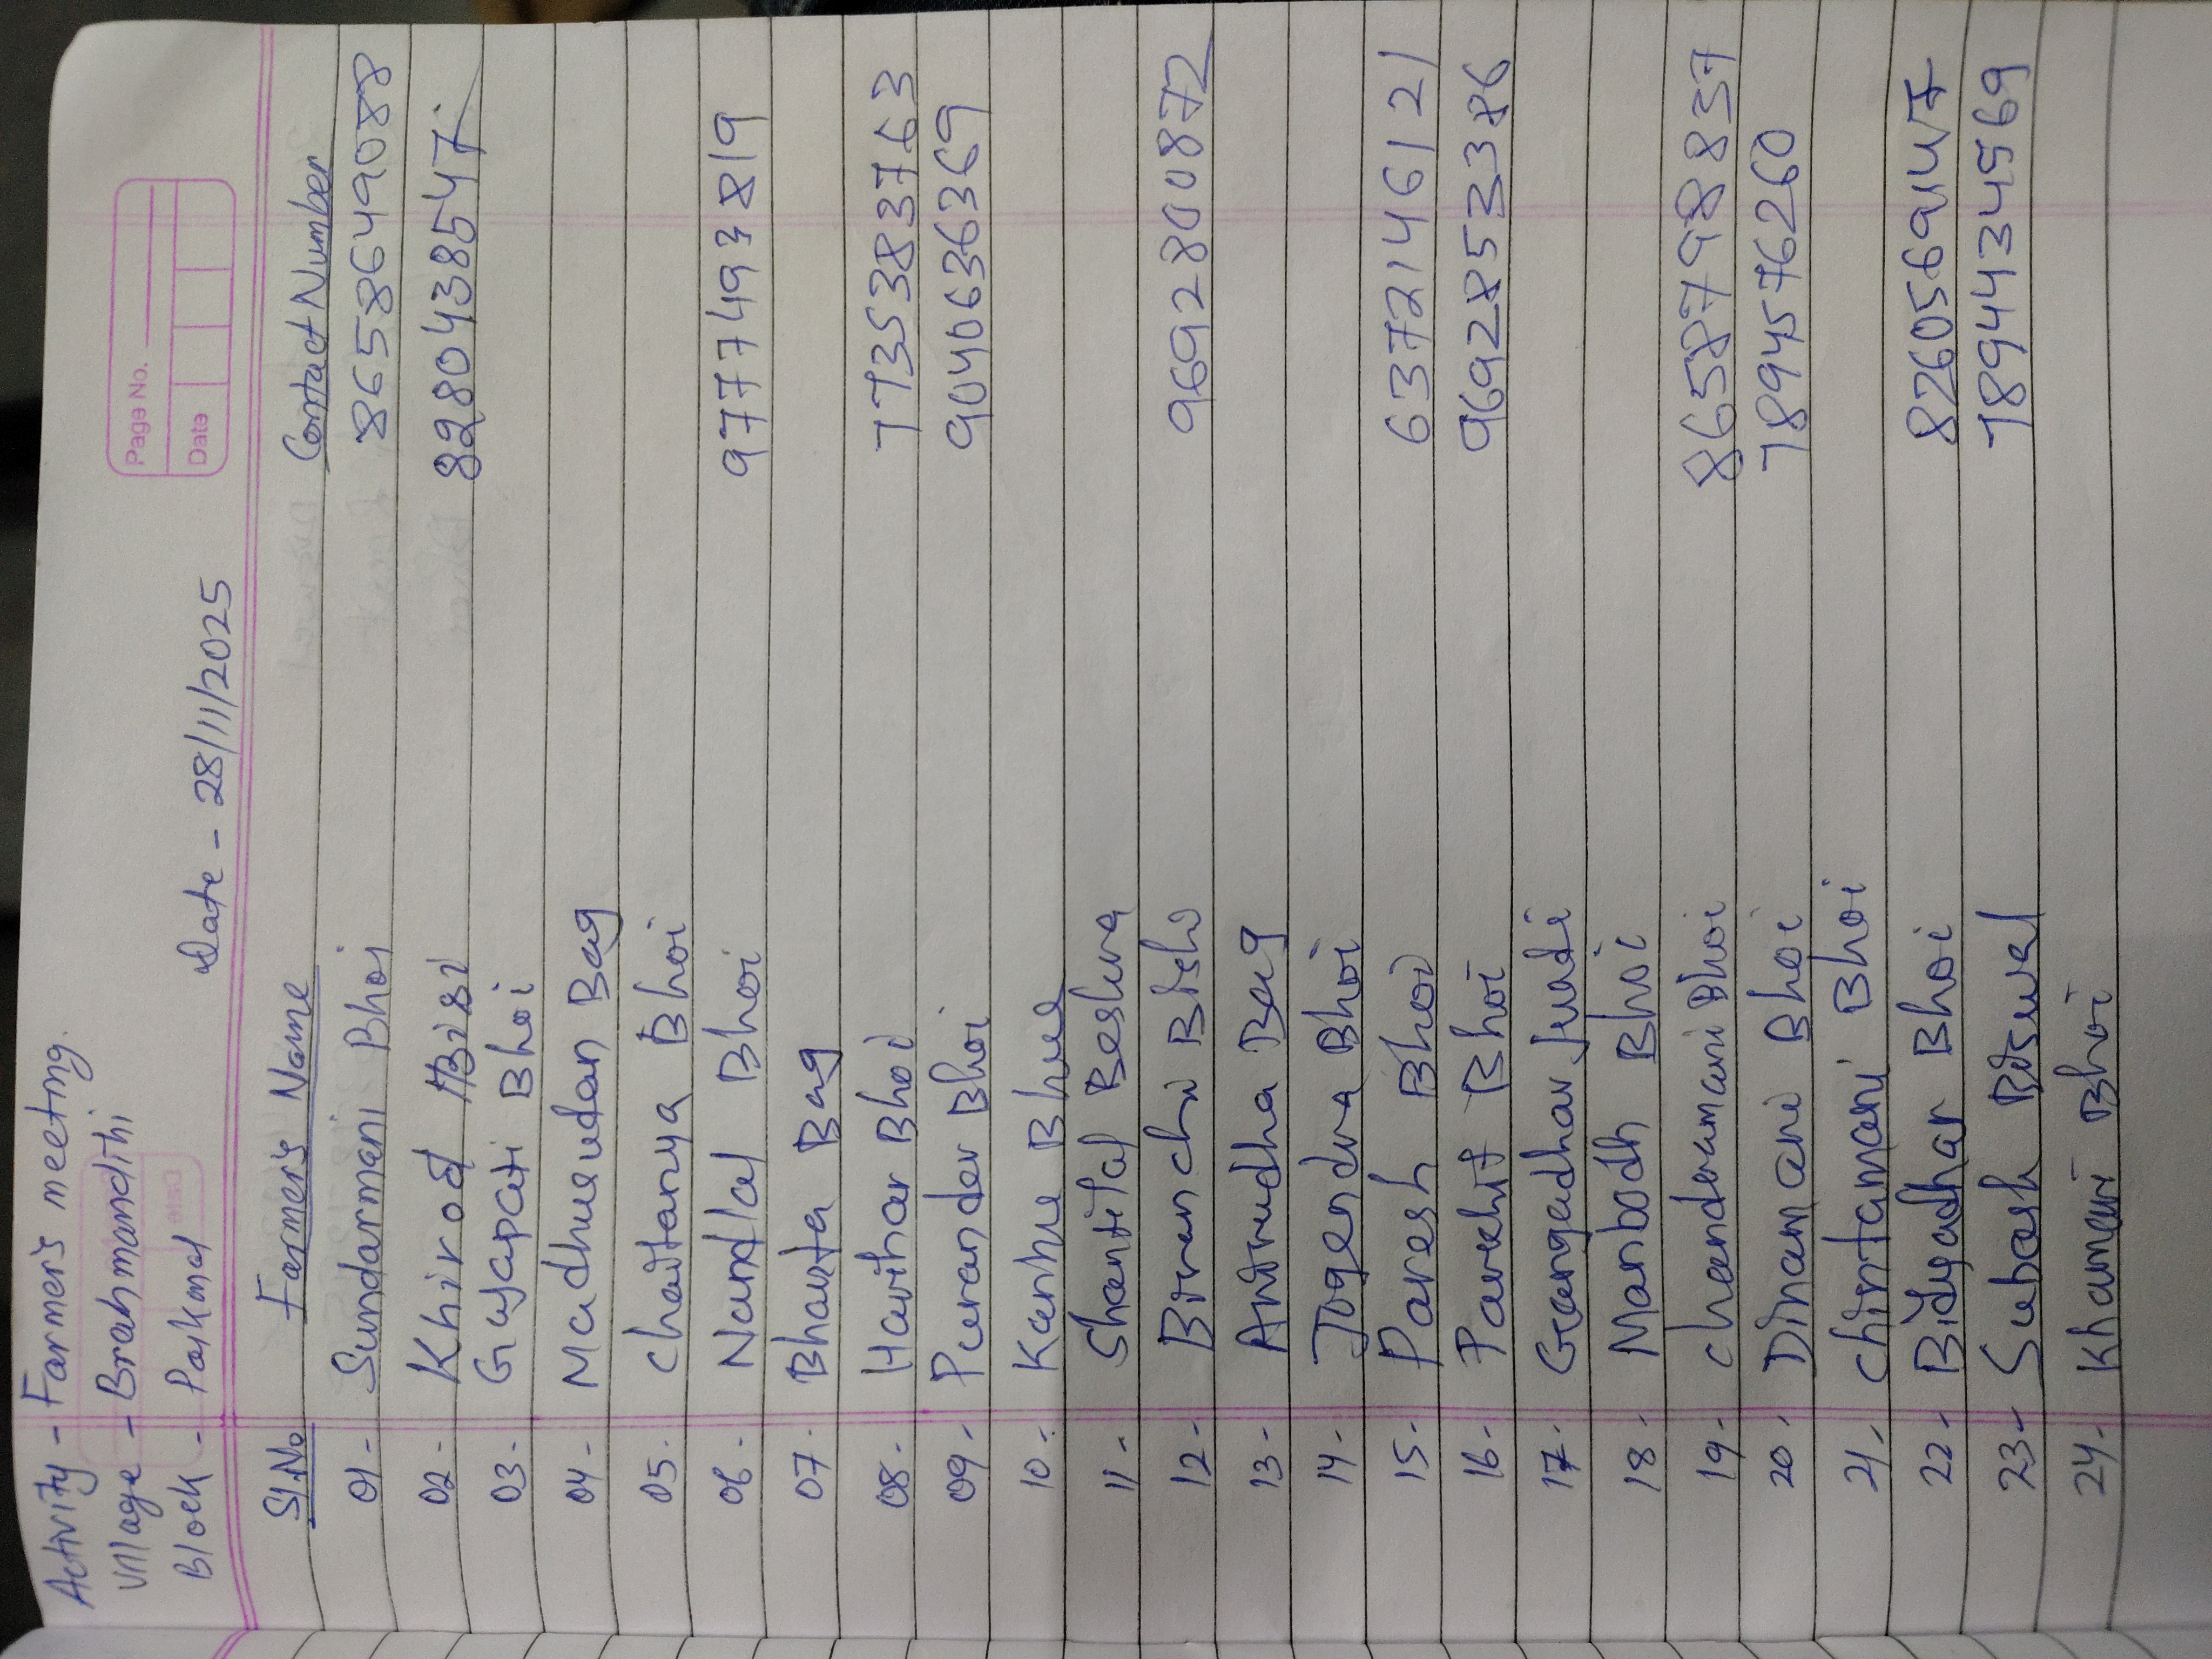 Page No.
Date
Activity - Farmer's meeting
Village - Brahmandihi
Block - Paikmal
Date - 28/11/2025
Sl.No Farmer's Name Contact Number
01- Sundarmani Bhoi 8658649088
02- Khirod Bisi 8280438547
03- Gajapati Bhoi
04- Madhusudan Bag
05- Chaitanya Bhoi
06- Nandlal Bhoi 9777493819
07- Bharta Bag
08- Harihar Bhoi 7735383763
09- Purander Bhoi 9040636369
10- Kanhu Bhue
11- Shantilal Beshra
12- Biranchi 9692800872
13- Anirudha Bag
14- Jogendra Bhoi
15- Paresh Bhoi 6372146121
16- Parkhit Bhoi 9692853386
17- Gangadhar
18- Manbodh Bhoi
19- Chandramani Bhoi 8658798837
20- Dinamani Bhoi 7894576260
21- Chintamani Bhoi
22- Bidyadhar Bhoi
23- Subash Biswal 7894434569
24- Khamani Bhoi